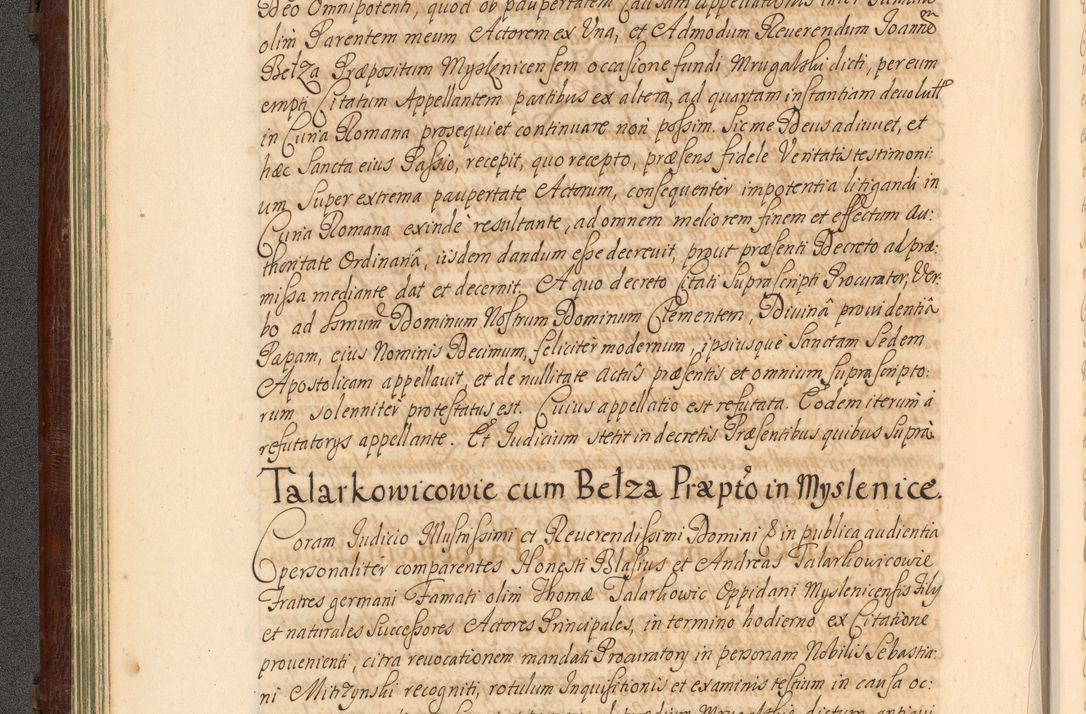 Deo Omnipotenti, quod ob paupertatem Causam appellationis inter
olim Parentem meum Actorem ex Una, et Admodum Reverendum Joannẽ
Bełza Præpositum Myslenicensem occasione fundi Mrugalski dicti, per eum
empti Citatum Appellantem partibus ex altera, ad quartam instantiam devolutã
in Curia Romana prosequi et continuare non possim. Sic me Deus adiuuet, et
hæc Sancta eius Passio, recepit, quo recepto, præsens fidele Veritatis testimoni:
um Super extrema paupertate Actorum, consequenter impotentia litigandi in
Curia Romana exinde resultante, ad omnem meliorem finem et effectum Au:
thoritate Ordinariâ, iisdem dandum esse decreuit, prout præsenti Decreto ad præ:
missa mediante dat et decernit. A quo decreto Citati Suprascripti Procurator, Ver:
bo ad Ssmum Dominum Nostrum Dominum Clementem, Divinâ providentiâ
Papam, eius Nominis Decimum, feliciter modernum, ipsiusque Sanctam Sedem
Apostolicam appellauit, et de nullitate Actûs præsentis et omnium suprascripto:
rum solenniter protestatus est. Cuius appellatio est refutata. Eodem iterum à
refutatorys appellante. Et Judicium stetit in decretis Præsentibus quibus Suprà
Talarkowicowie cum Bełza Præpto in Myslenice.
Coram Judicio Illustrissimi et Reverendissimi Domini & in publica audientia
personaliter comparentes Honesti Blasius et Andreas Talarkowicowie
Fratres germani Famati olim Thomæ Talarkowic Oppidani Myslenicensis Filij
et naturales Successores Actores Principales, in termino hodierno ex Citatione
provenienti, citra revocationem mandati Procuratory in personam Nobilis Sebastia:
ni Mitrzynski recogniti, rotulum Inquisitionis et examinis testium in causa oc:
Mrugalskie dictum antiqui